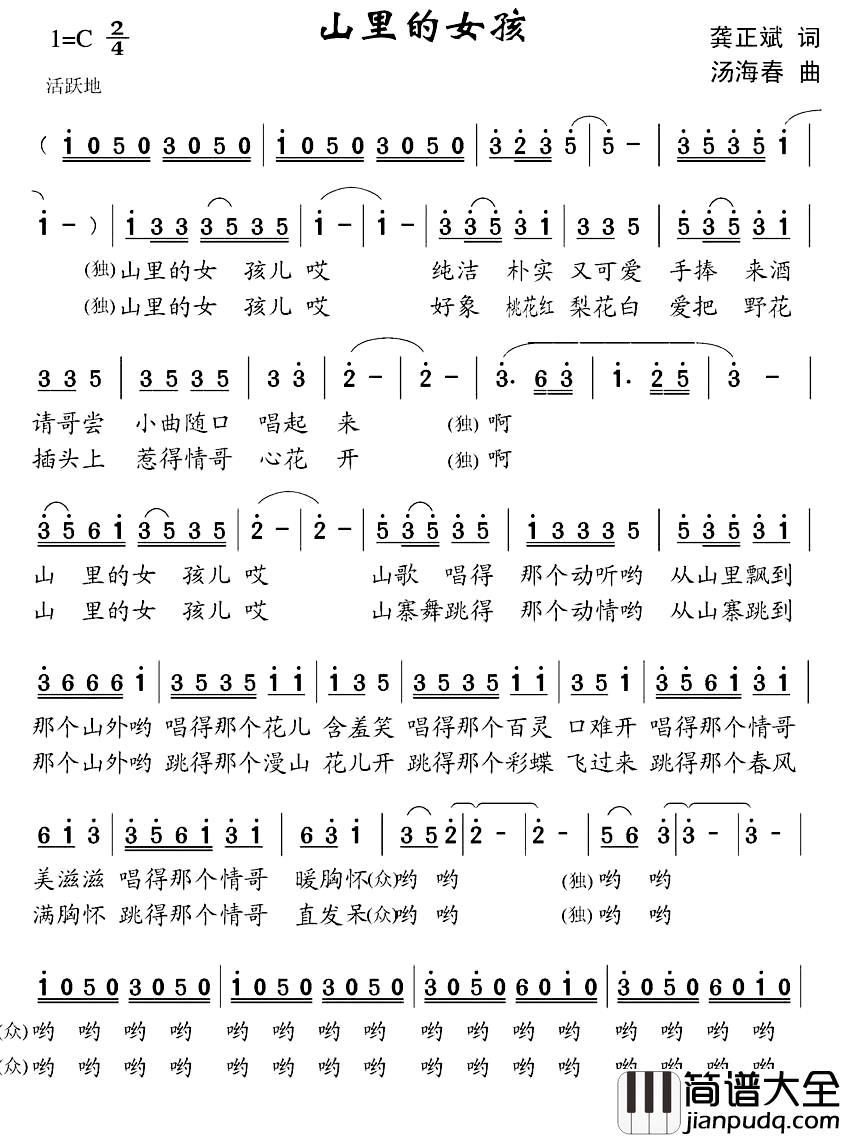 山里的女孩
1=C 2/4
龚正斌 词
汤海春 曲
活跃地
( 1 0 5 0 3 0 5 0 | 1 0 5 0 3 0 5 0 | 3 2 3 5 | 5 - | 3 5 3 5 1 |
1 - ) | 1 3 3 3 5 3 5 | 1 - | 1 - | 3 3 5 3 1 | 3 3 5 | 5 3 5 3 1 |
(独) 山里的女 孩儿 哎 纯洁 朴实 又可爱 手捧 来酒
(独) 山里的女 孩儿 哎 好象 桃花红 梨花白 爱把 野花
3 3 5 | 3 5 3 5 | 3 3 | 2 - | 2 - | 3. 6 3 | 1. 2 5 | 3 - |
请哥尝 小曲随口 唱起 来 (独) 啊
插头上 惹得情哥 心花 开 (独) 啊
3 5 6 1 3 5 3 5 | 2 - | 2 - | 5 3 5 3 5 | 1 3 3 3 5 | 5 3 5 3 1 |
山 里的女 孩儿 哎 山歌 唱得 那个动听哟 从山里飘到
山 里的女 孩儿 哎 山寨舞跳得 那个动情哟 从山寨跳到
3 6 6 6 1 | 3 5 3 5 1 1 | 1 3 5 | 3 5 3 5 1 1 | 3 5 1 | 3 5 6 1 3 1 |
那个山外哟 唱得那个花儿 含羞笑 唱得那个百灵 口难开 唱得那个情哥
那个山外哟 跳得那个漫山 花儿开 跳得那个彩蝶 飞过来 跳得那个春风
6 1 3 | 3 5 6 1 3 1 | 6 3 1 | 3 5 2 | 2 - | 2 - | 5 6 3 | 3 - | 3 - |
美滋滋 唱得那个情哥 暖胸怀(众)哟 哟 (独) 哟 哟
满胸怀 跳得那个情哥 直发呆(众)哟 哟 (独) 哟 哟
1 0 5 0 3 0 5 0 | 1 0 5 0 3 0 5 0 | 3 0 5 0 6 0 1 0 | 3 0 5 0 6 0 1 0 |
(众) 哟 哟 哟 哟 哟 哟 哟 哟 哟 哟 哟 哟 哟 哟 哟 哟
(众) 哟 哟 哟 哟 哟 哟 哟 哟 哟 哟 哟 哟 哟 哟 哟 哟
简谱大全
jianpudq.com